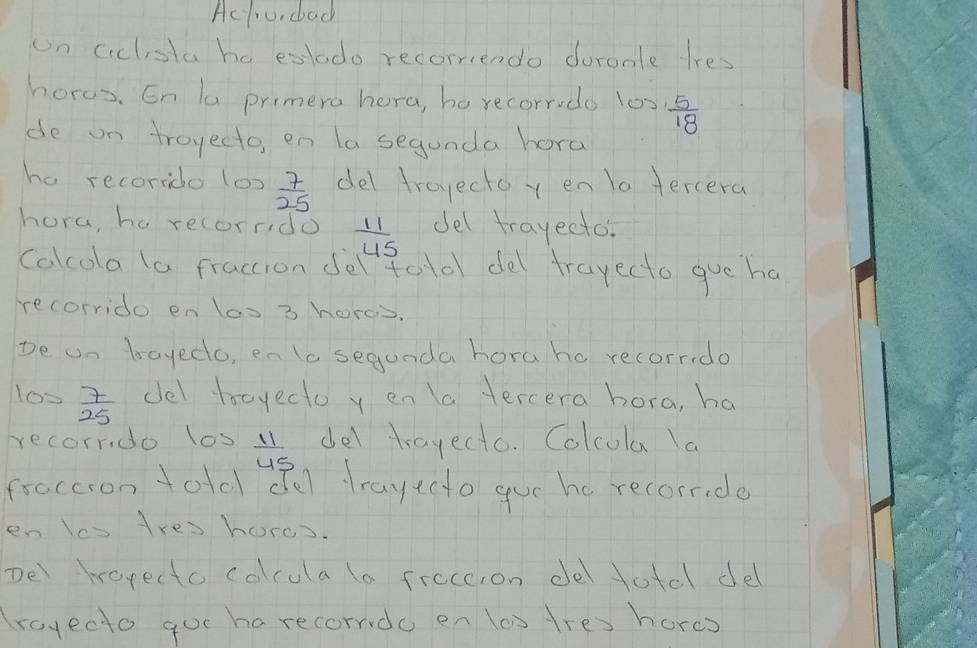 Actividad
un ciclista ha estado recorriendo durante tres
horas. En la primera hora, ha recorrido los 5/18
de un trayecto, en la segunda hora
ha recorrido los 7/25 del trayecto y en la tercera
hora, ha recorrido 11/45 del trayecto.
Calcola la fraccion del total del trayecto que ha
recorrido en las 3 horas.
De un trayecto, en la segunda hora ha recorrido
los 7/25 del trayecto y en la tercera hora, ha
recorrido los 11/45 del trayecto. Calcula la
fraccion total del trayecto que ha recorrido
en las tres horas.
Del trayecto calcula la fraccion del total del
trayecto que ha recorrido en las tres horas